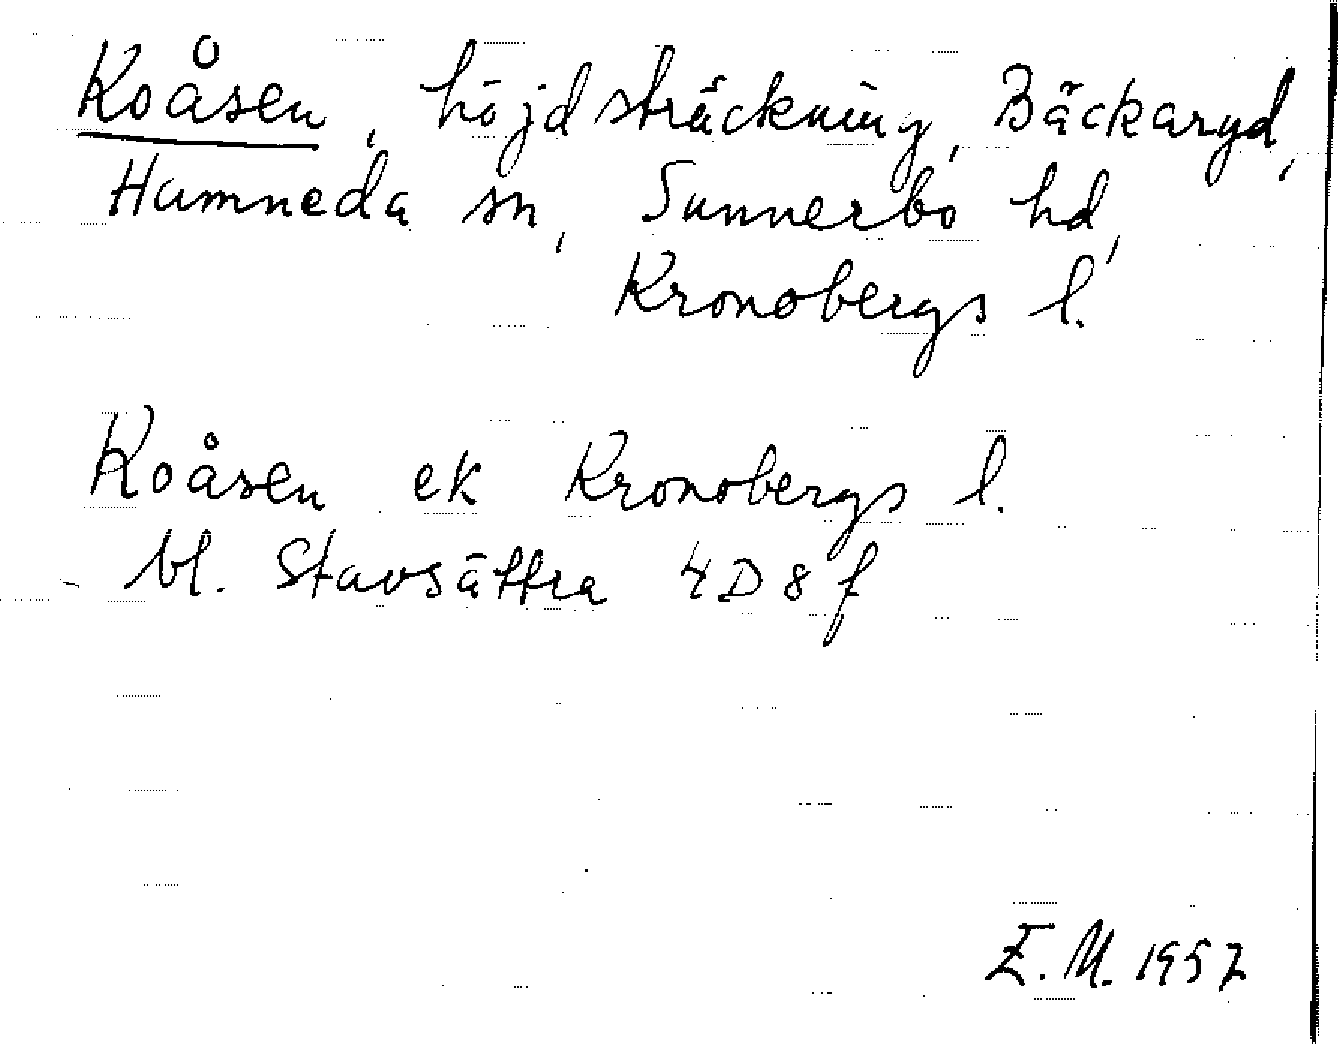 Koåsen, höjdsträckning, Bäckaryd,
Hamneda sn, Sunnerbo hd,
Kronobergs l.
Koåsen ek Kronobergs l.
bl. Stavsättra 4D8f
E.M. 1957